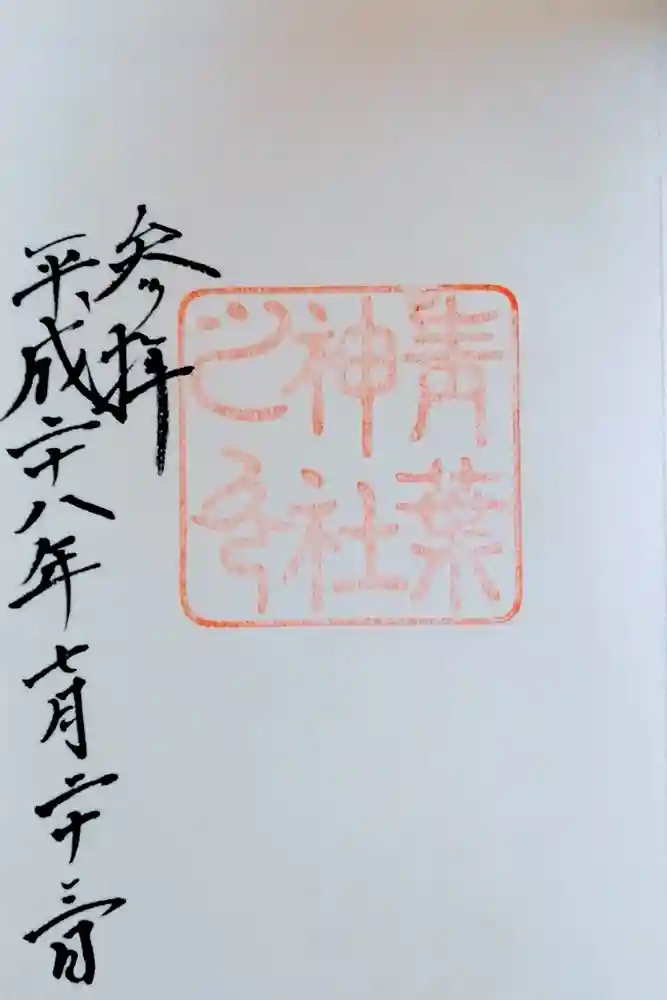 青葉
神社
之印
参拝
平成二十八年七月二十三日